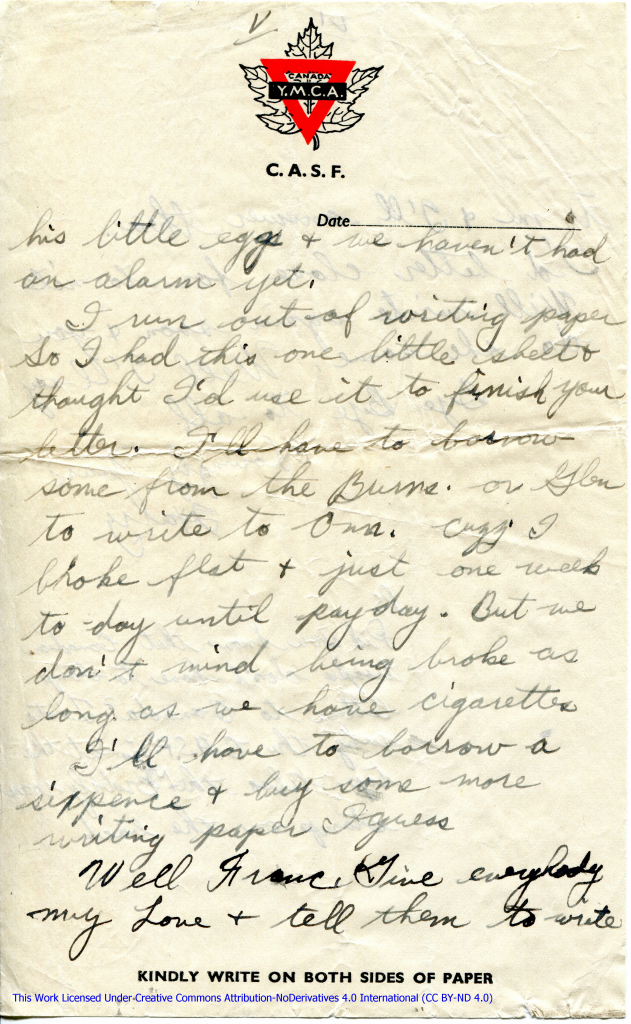 V
CANADA
Y.M.C.A.
C. A. S. F.
Date
his little eggs & we haven't had
an alarm yet.
I run out of writing paper
So I had this one little sheet &
thought I'd use it to finish your
letter. I'll have to borrow
some from the Burns. or Glen
to write to Onn. Cuzz I
broke flat & just one week
to-day until payday. But we
don't mind being broke as
long as we have cigarettes
I'll have to borrow a
sixpence & buy some more
writing paper I guess
Well Franc. Give everybody
my Love & tell them to write
KINDLY WRITE ON BOTH SIDES OF PAPER
This Work Licensed Under-Creative Commons Attribution-NoDerivatives 4.0 International (CC BY-ND 4.0)